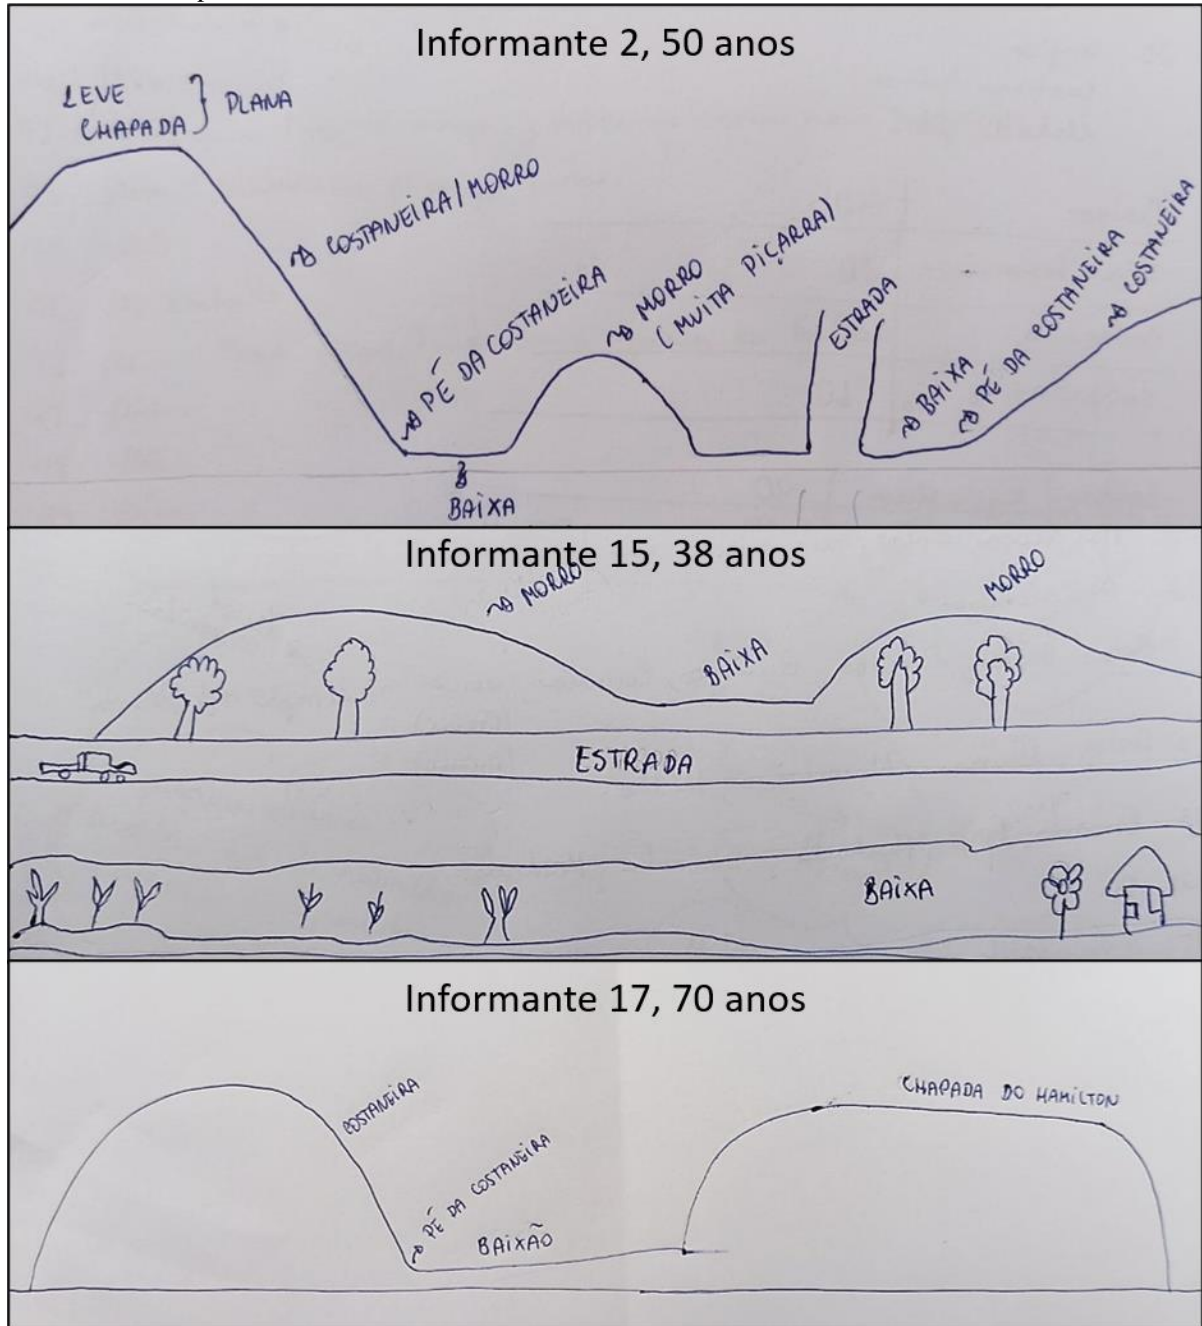 Informante 2, 50 anos
LEVE
CHAPADA } PLANA
COSTANEIRA/MORRO
PÉ DA COSTANEIRA
MORRO
(MUITA PIÇARRA)
ESTRADA
BAIXA
PÉ DA COSTANEIRA
COSTANEIRA
BAIXA
Informante 15, 38 anos
MORRO
MORRO
BAIXA
ESTRADA
BAIXA
Informante 17, 70 anos
COSTANEIRA
PÉ DA COSTANEIRA
BAIXÃO
CHAPADA DO HAMILTON